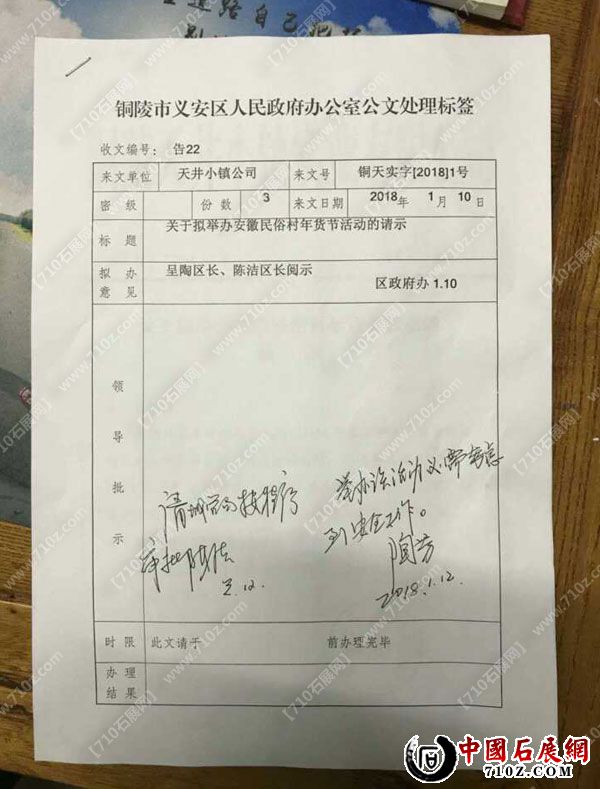 道路自己把握
铜陵市义安区人民政府办公室公文处理标签
收文编号： 告22
来文单位 天井小镇公司 来文号 铜天实字[2018]1号
密级 份数 3 来文日期 2018年 1月 10日
标题 关于拟举办安徽民俗村年货节活动的请示
拟办意见 呈陶区长、陈洁区长阅示
区政府办 1.10
领导批示
按程序
审批 陈洁
举办该活动 必须考虑
到安全工作。
陶芳
2018.1.12
时限 此文请于 前办理完毕
办理结果
【710石展网】
www.710z.com
中國石展網
710Z.COM